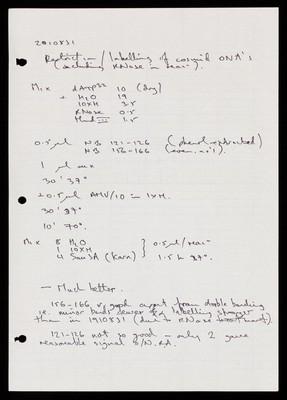 2010831
Restriction / labelling of cosmid DNA's
(including RNase in react.).
Mix dATP32 10 (dry)
+ H2O 19
10XH 2.5
RNase 0.5
HindIII 1.5
0.5 µl NB 121-126 (phenol extracted)
NB 156-166 (even no's).
1 µl mix
30' 37°
+ 0.5 µl AMV/10 in 1XH.
30' 37°
10' 70°.
Mix 8 H2O
1 10XH } 0.5 µl / react
4 Sau3A (Karn) 1.5 h 37°.
— Much better.
156-166 v. good apart from double banding
ie. minor bands fewer & labelling stronger
than in 1910831 (due to RNase treatment).
121-126 not so good — only 2 gave
reasonable signal S/N.